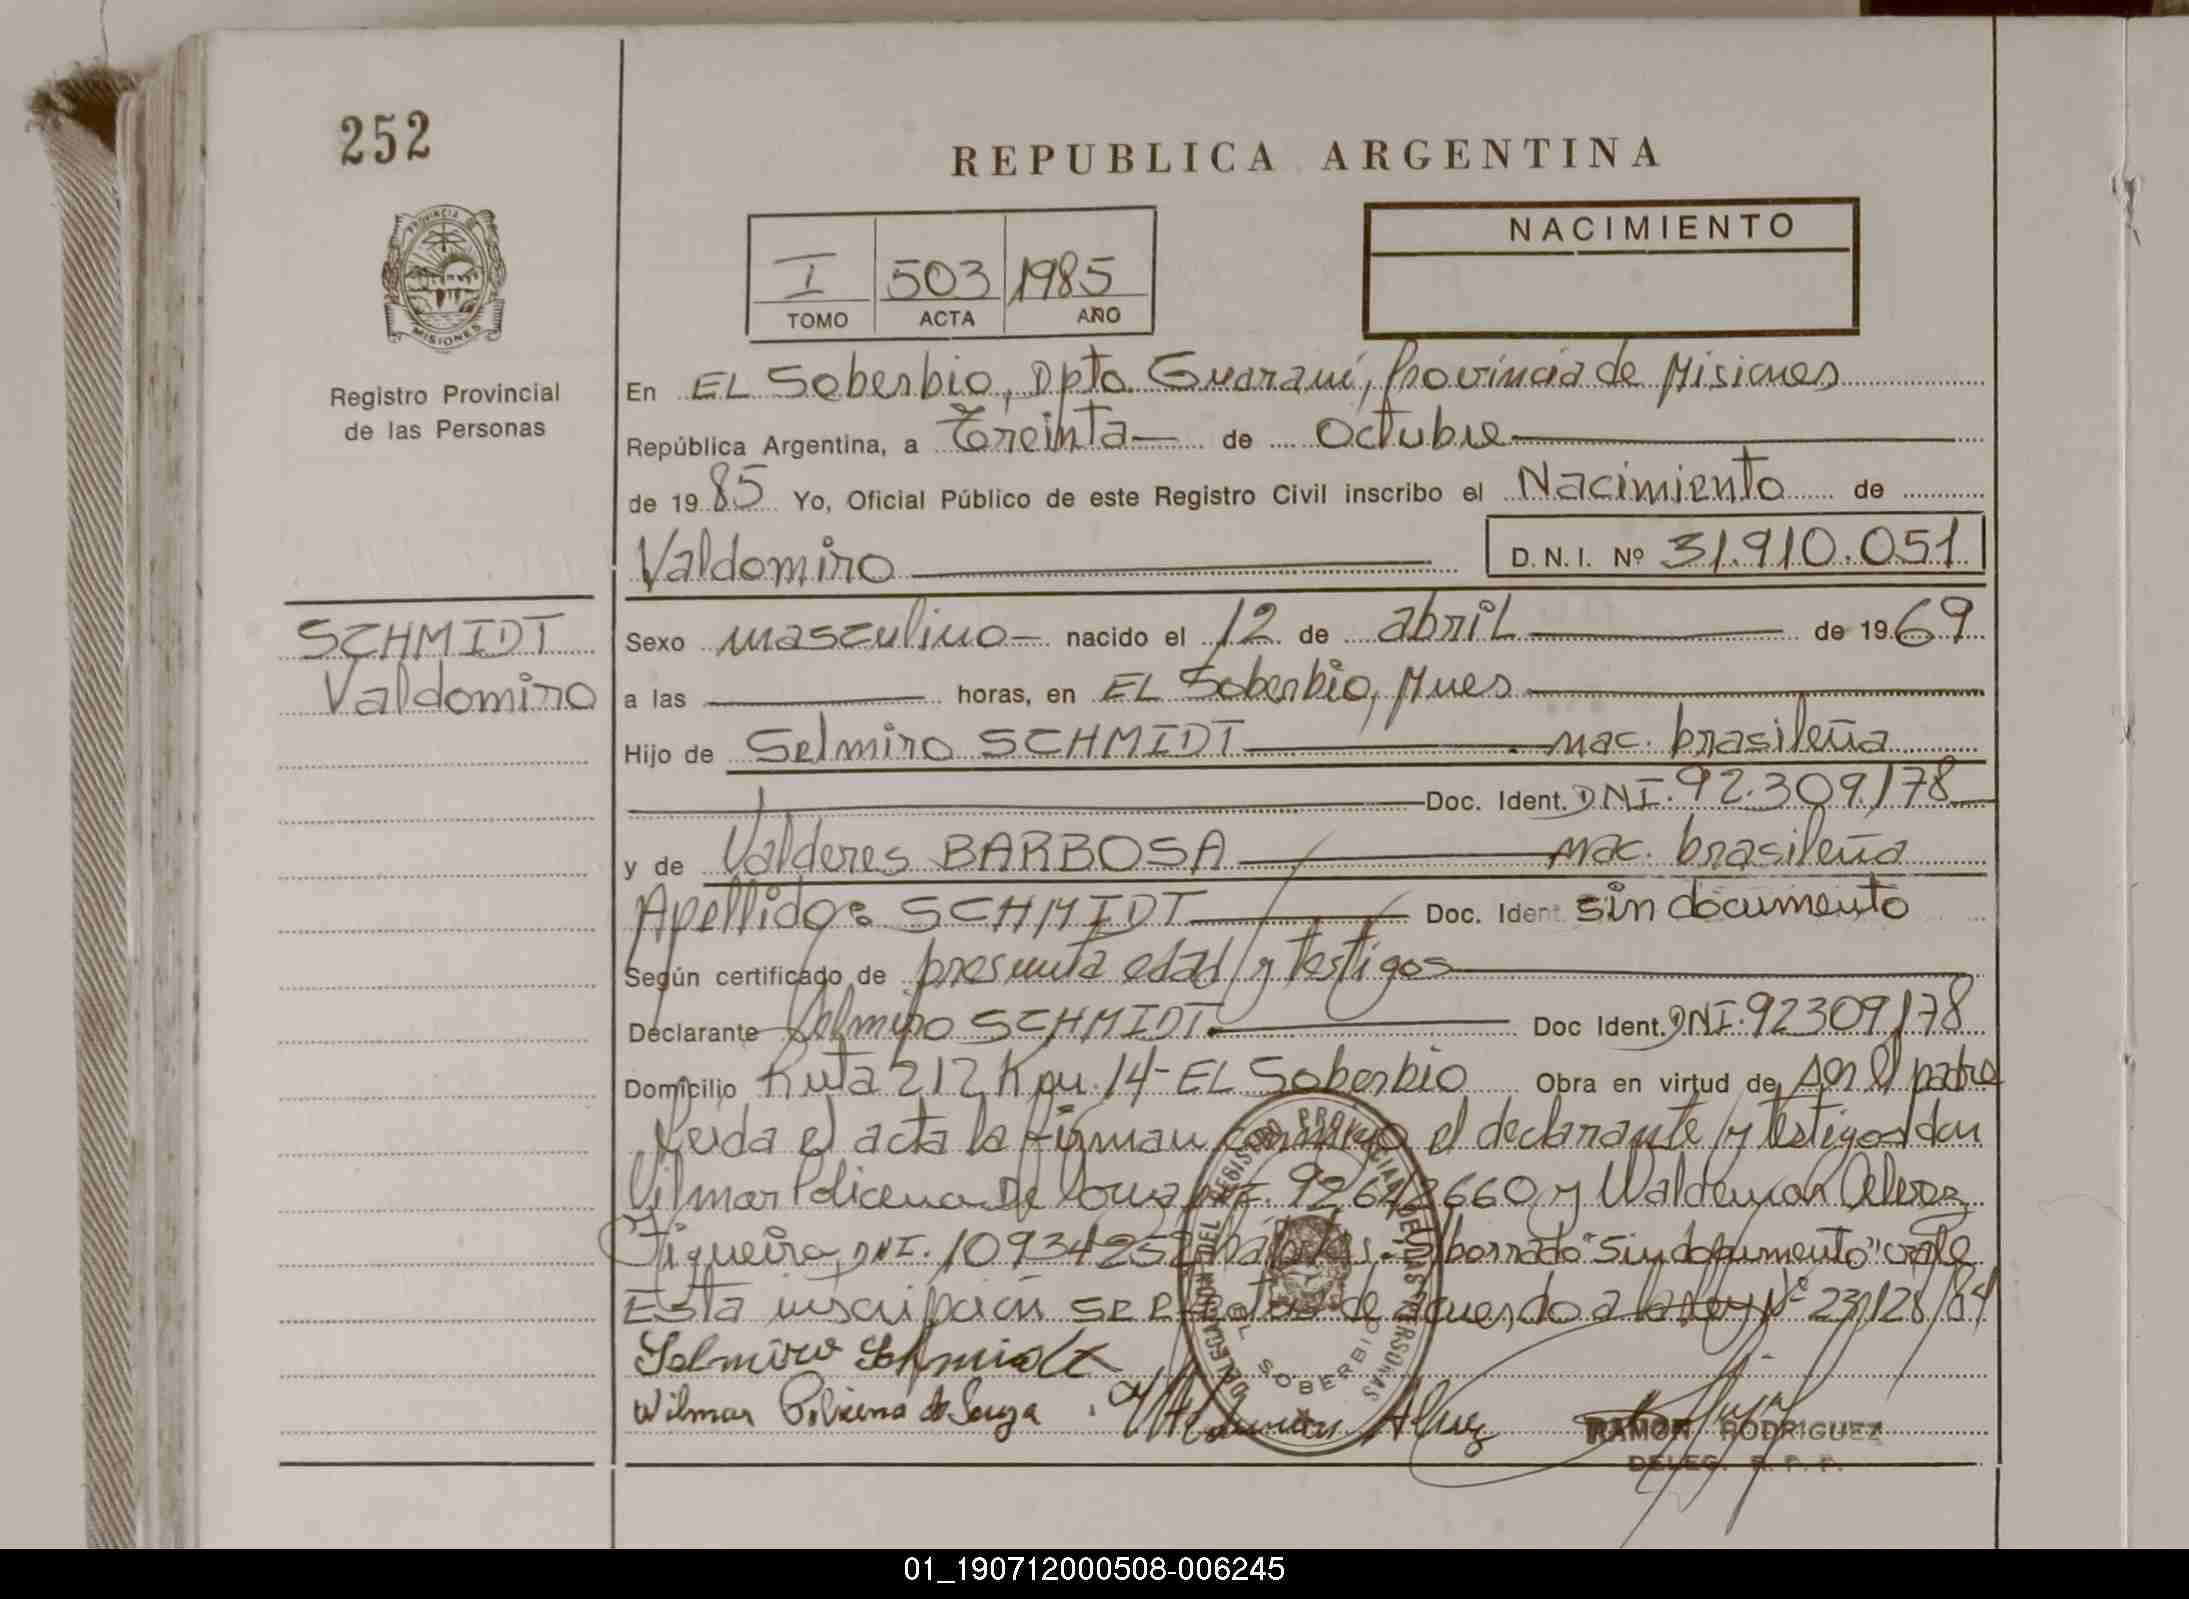 252
REPUBLICA ARGENTINA
PROVINCIA DE MISIONES
I 503 1985
TOMO ACTA AÑO
NACIMIENTO
Registro Provincial
de las Personas
En EL Soberbio, Dpto. Guaraní, Provincia de Misiones
República Argentina, a Treinta de Octubre
de 1985 Yo, Oficial Público de este Registro Civil inscribo el Nacimiento de
Valdomiro D.N.I. Nº 31.910.051
SCHMIDT
Valdomiro
Sexo masculino nacido el 12 de abril de 1969
a las horas, en EL Soberbio, Mnes
Hijo de Selmiro SCHMIDT nac. brasileña
Doc. Ident. DNI. 92.309.178
y de Valderes BARBOSA nac. brasileña
Apellido: SCHMIDT Doc. Ident. sin documento
Según certificado de presunta edad y testigos
Declarante Selmiro SCHMIDT Doc Ident. DNI. 92309178
Domicilio Ruta 212 Km. 14- EL Soberbio Obra en virtud de ser el padre
Leida el acta la firman conmigo el declarante y testigos don
Vilmar Policeno De Souza DNI. 92642660 y Waldemar
Figueira DNI. 10934252 borrado "Sin documento" vale
Esta inscripción se de acuerdo a la Ley Nº 23128/84
Selmiro Schmidt
Wilmar de Souza
REGISTRO PROVINCIAL DE LAS PERSONAS
EL SOBERBIO
RAMON RODRIGUEZ
DELEG. R. P. P.
01_190712000508-006245